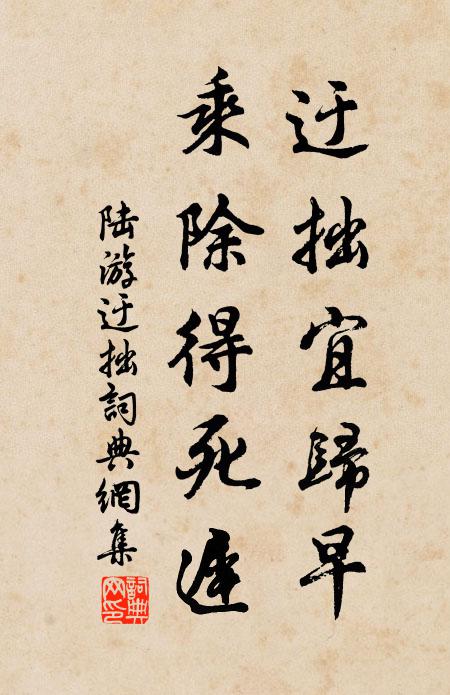 迂拙宜歸早
乘除得死遲
陸游迂拙詞典網集
詞典網印